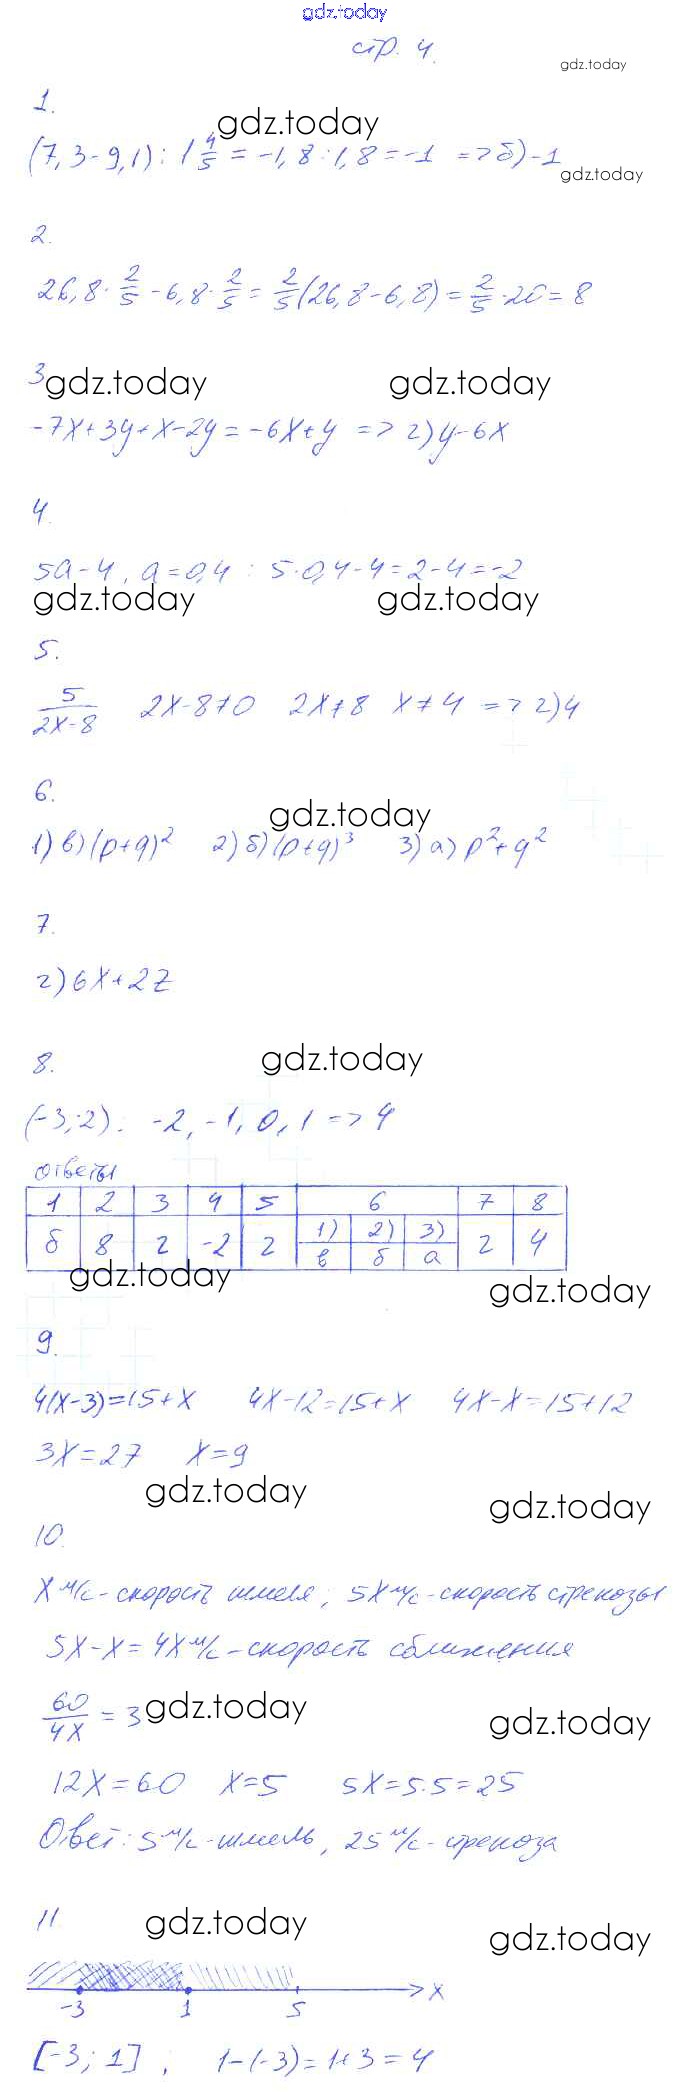 gdz.today
стр. 4.
gdz.today
1.
gdz.today
(7,3-9,1):1 4/5=-1,8:1,8=-1 => б)-1
gdz.today
2.
26,8·2/5-6,8·2/5=2/5(26,8-6,8)=2/5·20=8
3
gdz.today gdz.today
-7x+3y+x-2y=-6x+y => г)y-6x
4.
5a-4, a=0,4 : 5·0,4-4=2-4=-2
gdz.today gdz.today
5.
5/(2x-8) 2x-8≠0 2x≠8 x≠4 => г)4
6.
gdz.today
1)в)(p+q)² 2)б)(p+q)³ 3)а)p²+q²
7.
г)6x+2z
8. gdz.today
(-3;2): -2,-1,0,1 => 4
ответы
1 2 3 4 5 6 7 8
б 8 г -2 г 1) 2) 3) г 4
в б а
gdz.today gdz.today
9.
4(x-3)=15+x 4x-12=15+x 4x-x=15+12
3x=27 x=9
gdz.today gdz.today
10.
x м/с-скорость шмеля; 5x м/с-скорость стрекозы
5x-x=4x м/с-скорость сближения
60/4x=3
gdz.today gdz.today
12x=60 x=5 5x=5·5=25
Ответ: 5 м/с-шмель, 25 м/с-стрекоза
11. gdz.today
gdz.today
-3 1 5 x
[-3;1]; 1-(-3)=1+3=4